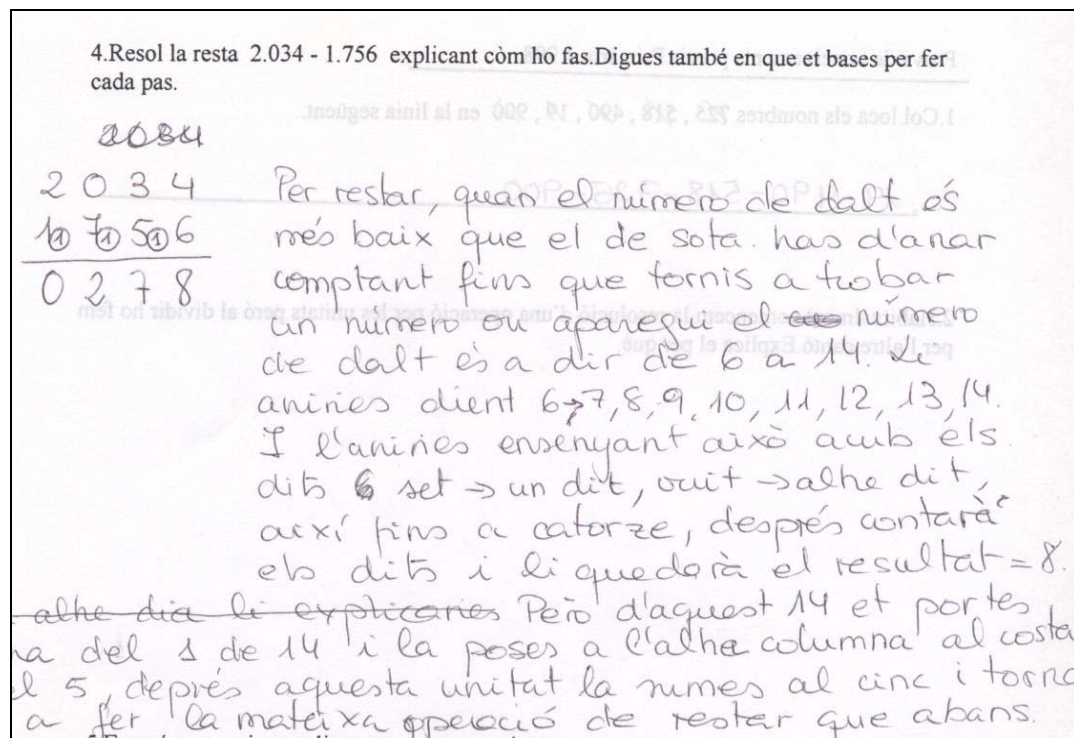 4.Resol la resta 2.034 - 1.756 explicant còm ho fas.Digues també en que et bases per fer
cada pas.
2034
2 0 3 4
1① 7① 5① 6
0 2 7 8
Per restar, quan el número de dalt és
més baix que el de sota. has d'anar
comptant fins que tornis a trobar
un número on aparegui el número
de dalt és a dir de 6 a 14.
aniries dient 6→7, 8, 9, 10, 11, 12, 13, 14.
I l'aniries ensenyant això amb els
dits set → un dit, vuit → altre dit,
així fins a catorze, després contarà
els dits i li quedarà el resultat = 8.
altre dia li explicaries Però d'aquest 14 et portes
na del 1 de 14 i la poses a l'altre columna al costa
el 5, deprés aquesta unitat la sumes al cinc i torna
a fer la mateixa operació de restar que abans.